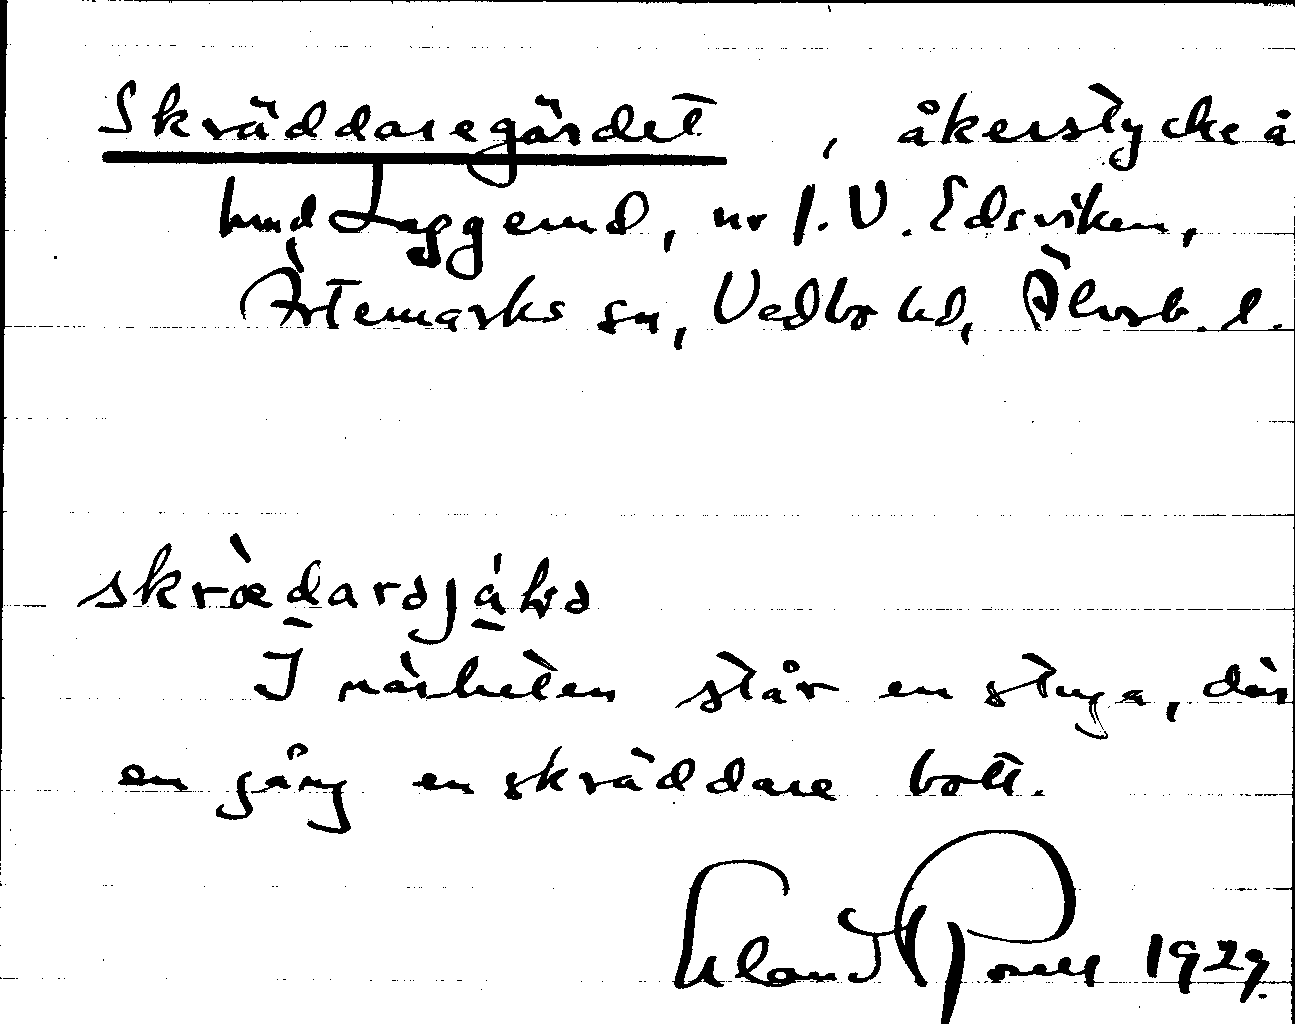 Skräddaregärdet, åkerstycke å
hmd Laggerud, nr 1. V. Edsviken,
Ärtemarks sn, Vedbo hd, Älvsb. l.
skræ̀darəjáḷə
I närheten står en stuga, där
en gång en skräddare bott.
Erland Rosell 1929.